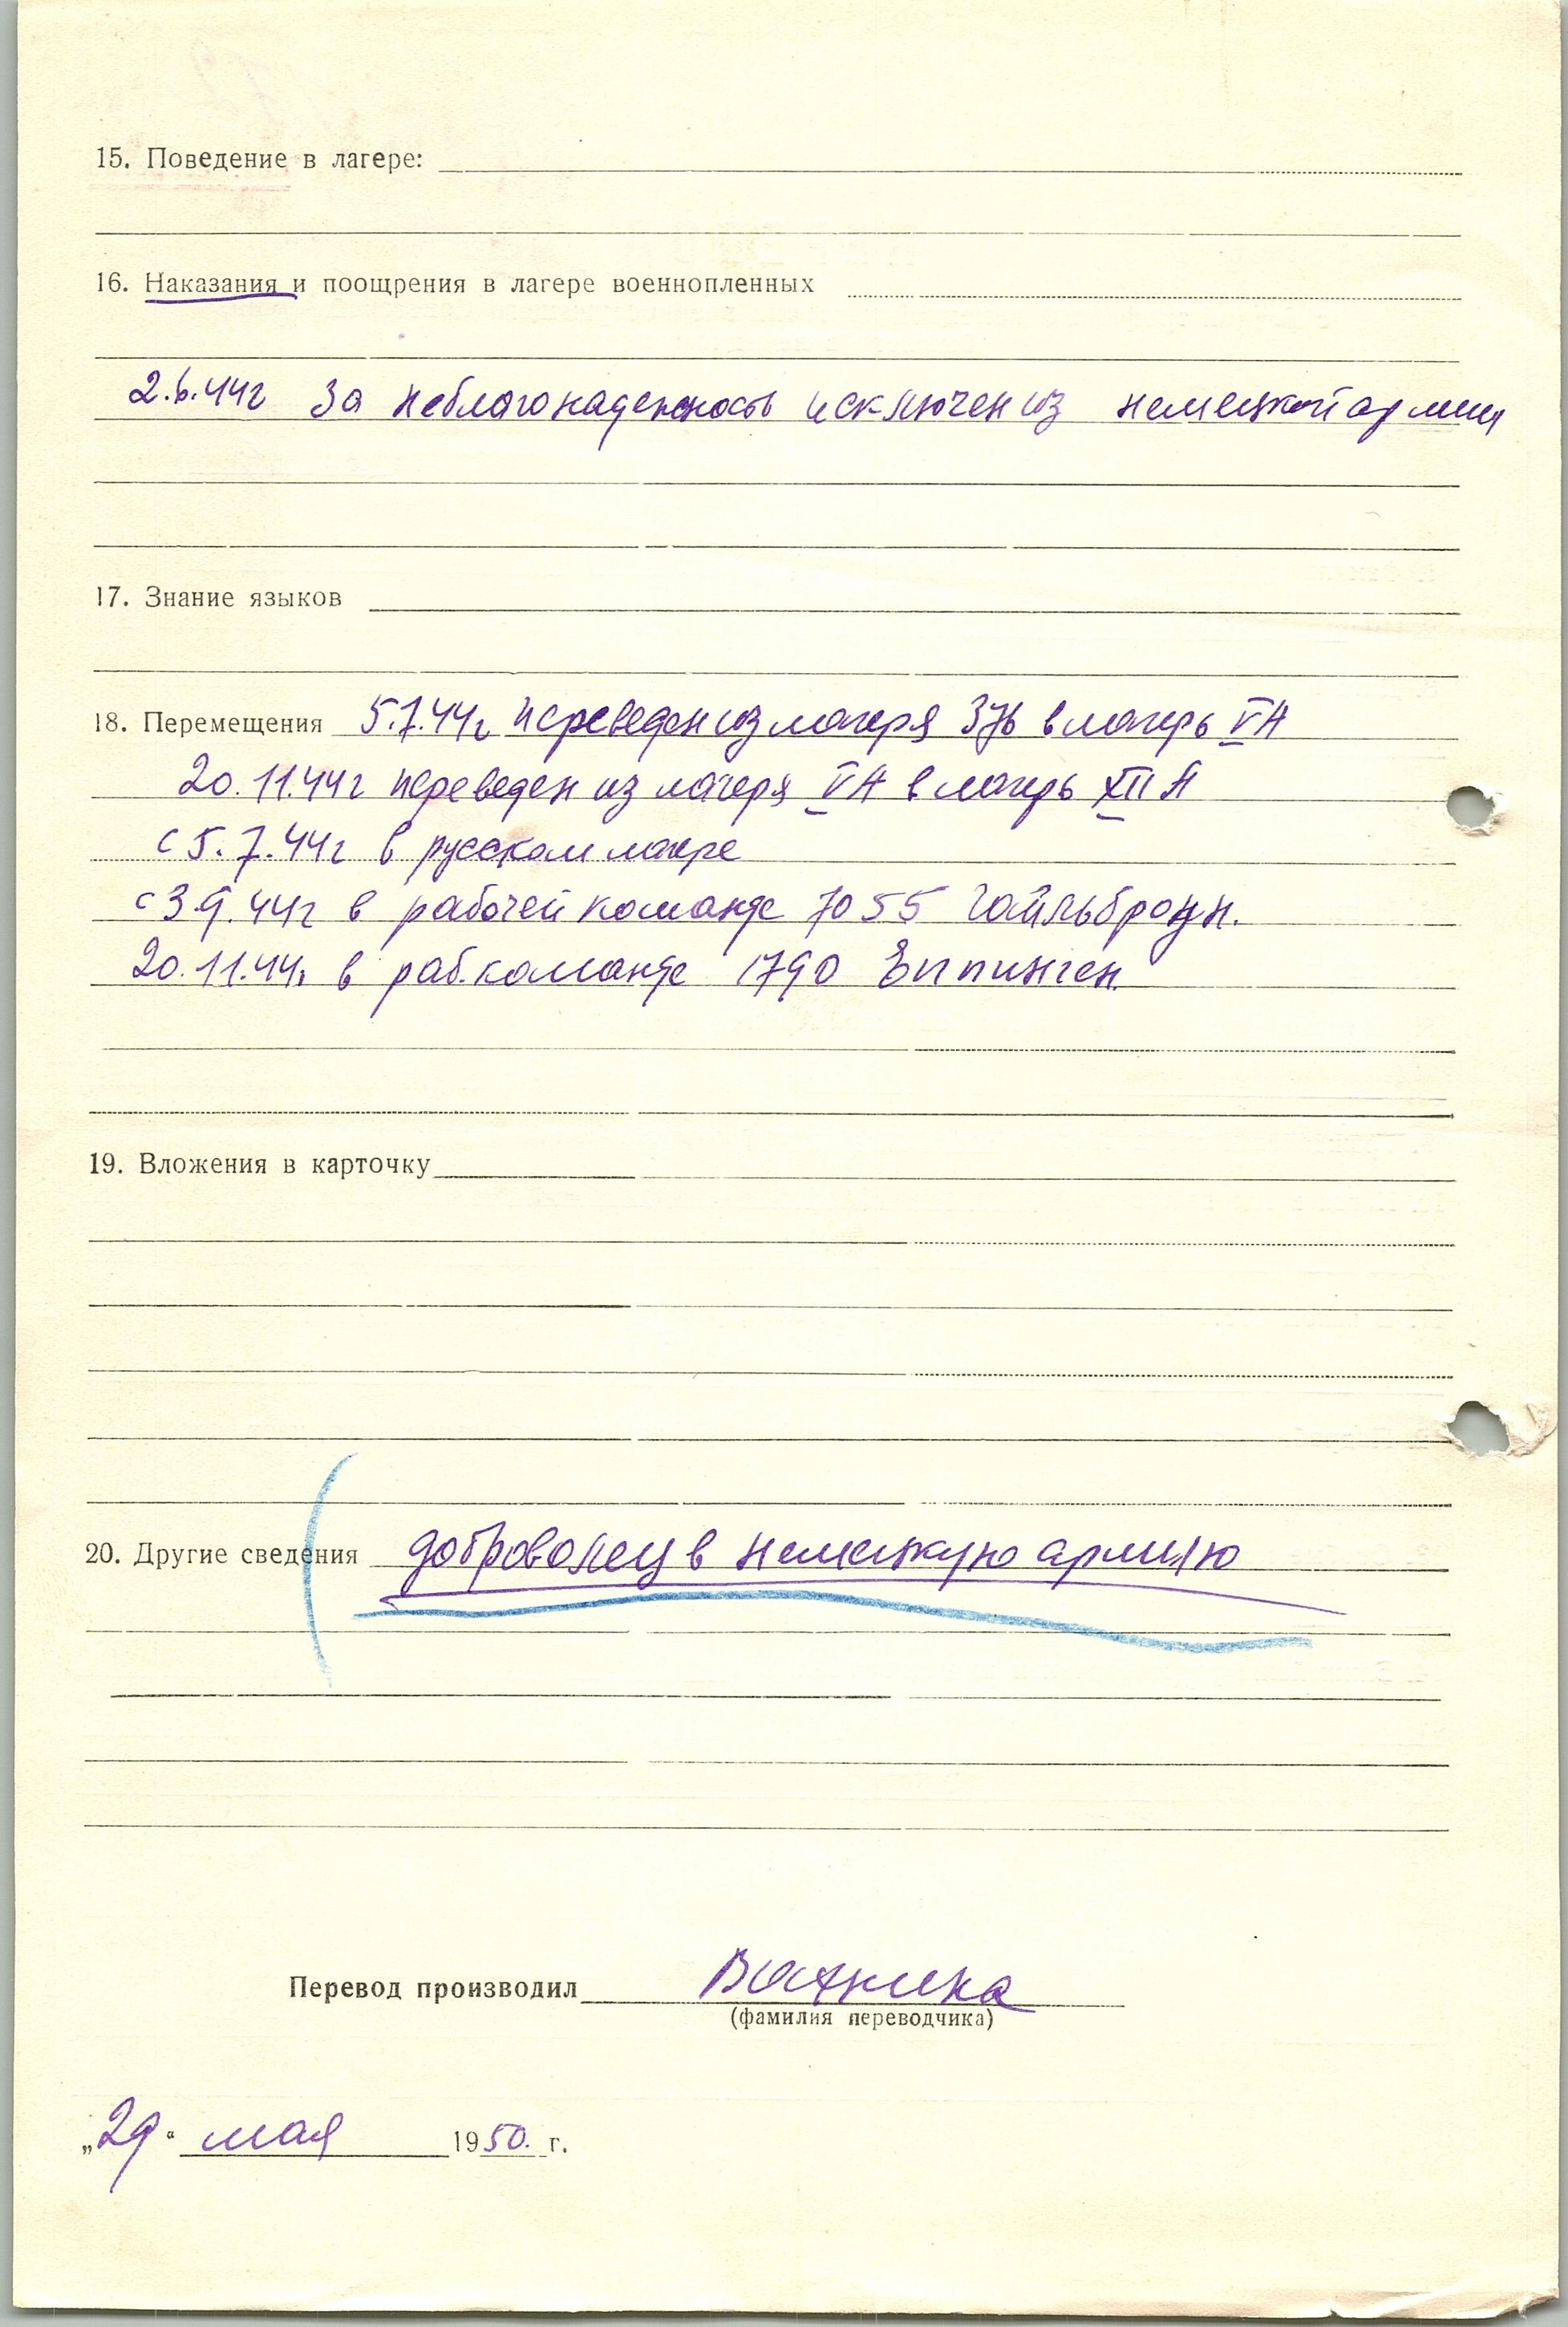 15. Поведение в лагере:
16. Наказания и поощрения в лагере военнопленных
2.6.44г За неблагонадежность исключен из немецкой армии
17. Знание языков
18. Перемещения 5.7.44г переведен из лагеря 376 в лагерь VА
20.11.44г переведен из лагеря VА в лагерь XIIА
с 5.7.44г в русском лагере
с 3.9.44г в рабочей команде 7055 Гайльбронн.
20.11.44г в раб.команде 1790 Эппинген.
19. Вложения в карточку
20. Другие сведения доброволец в немецкую армию
Перевод производил
(фамилия переводчика)
„29“ мая 1950. г.